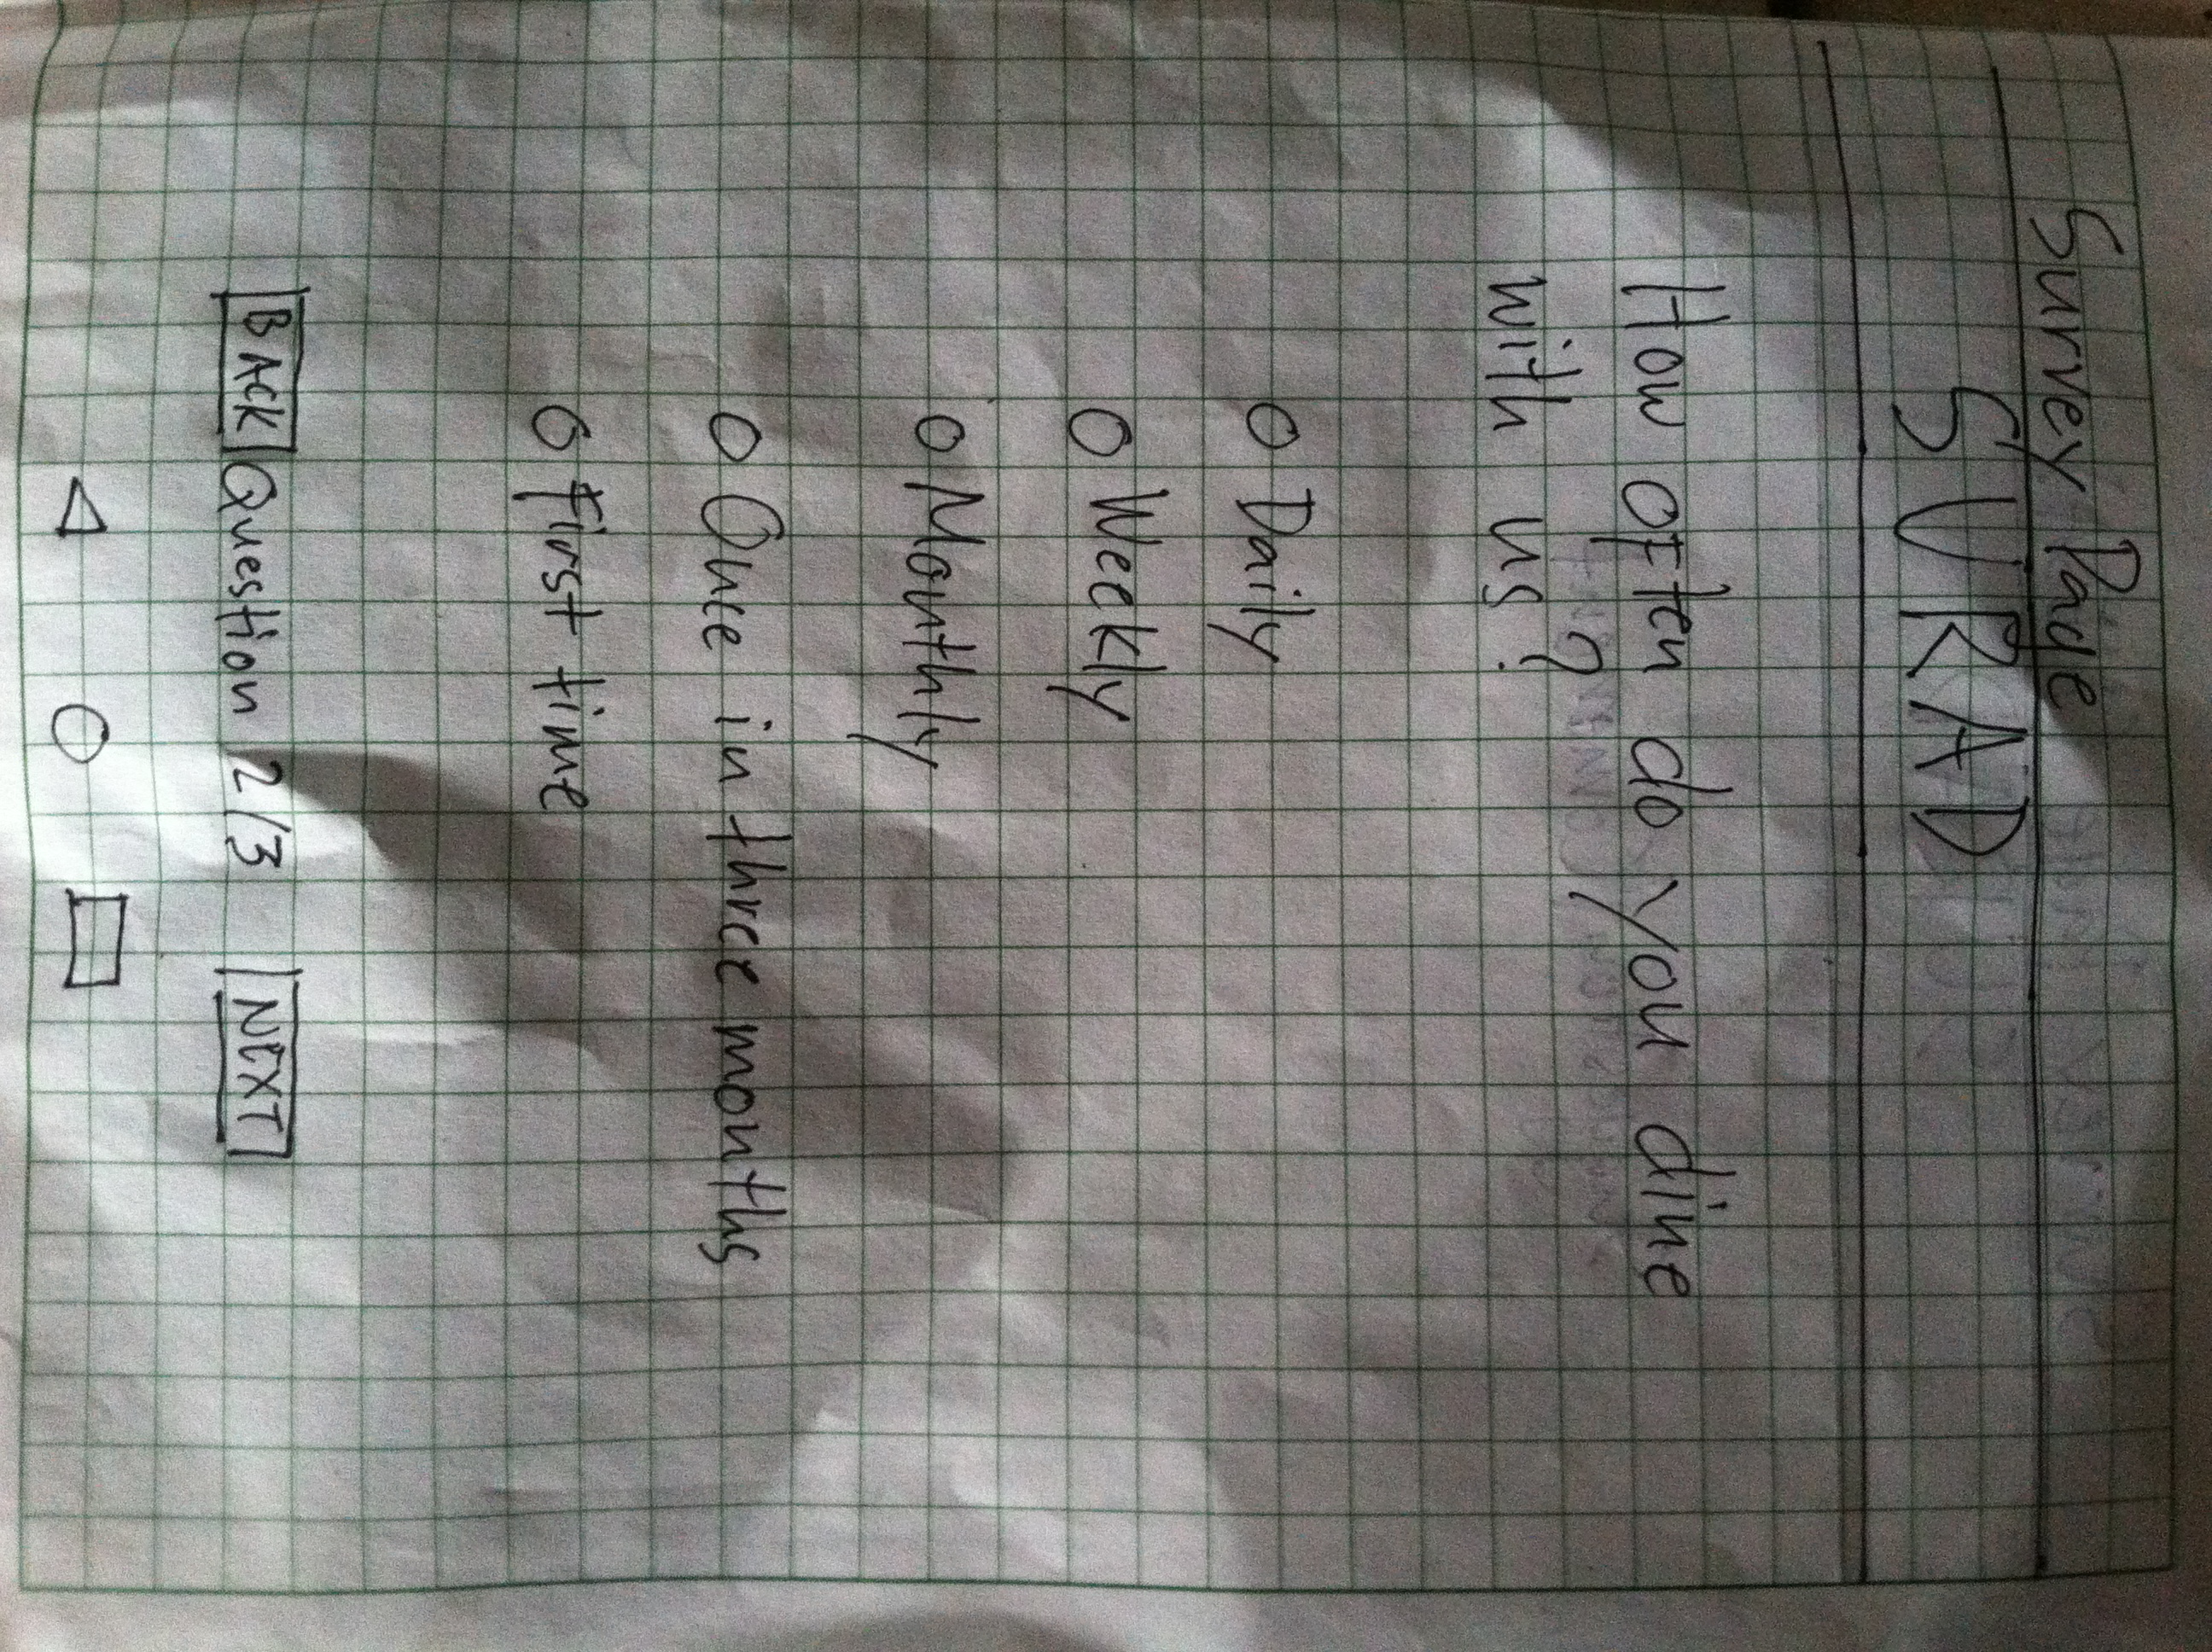 Survey Page
SURAD
How often do you dine
with us?
Daily
Weekly
Monthly
Once in three months
First time
BACK Question 2/3 NEXT